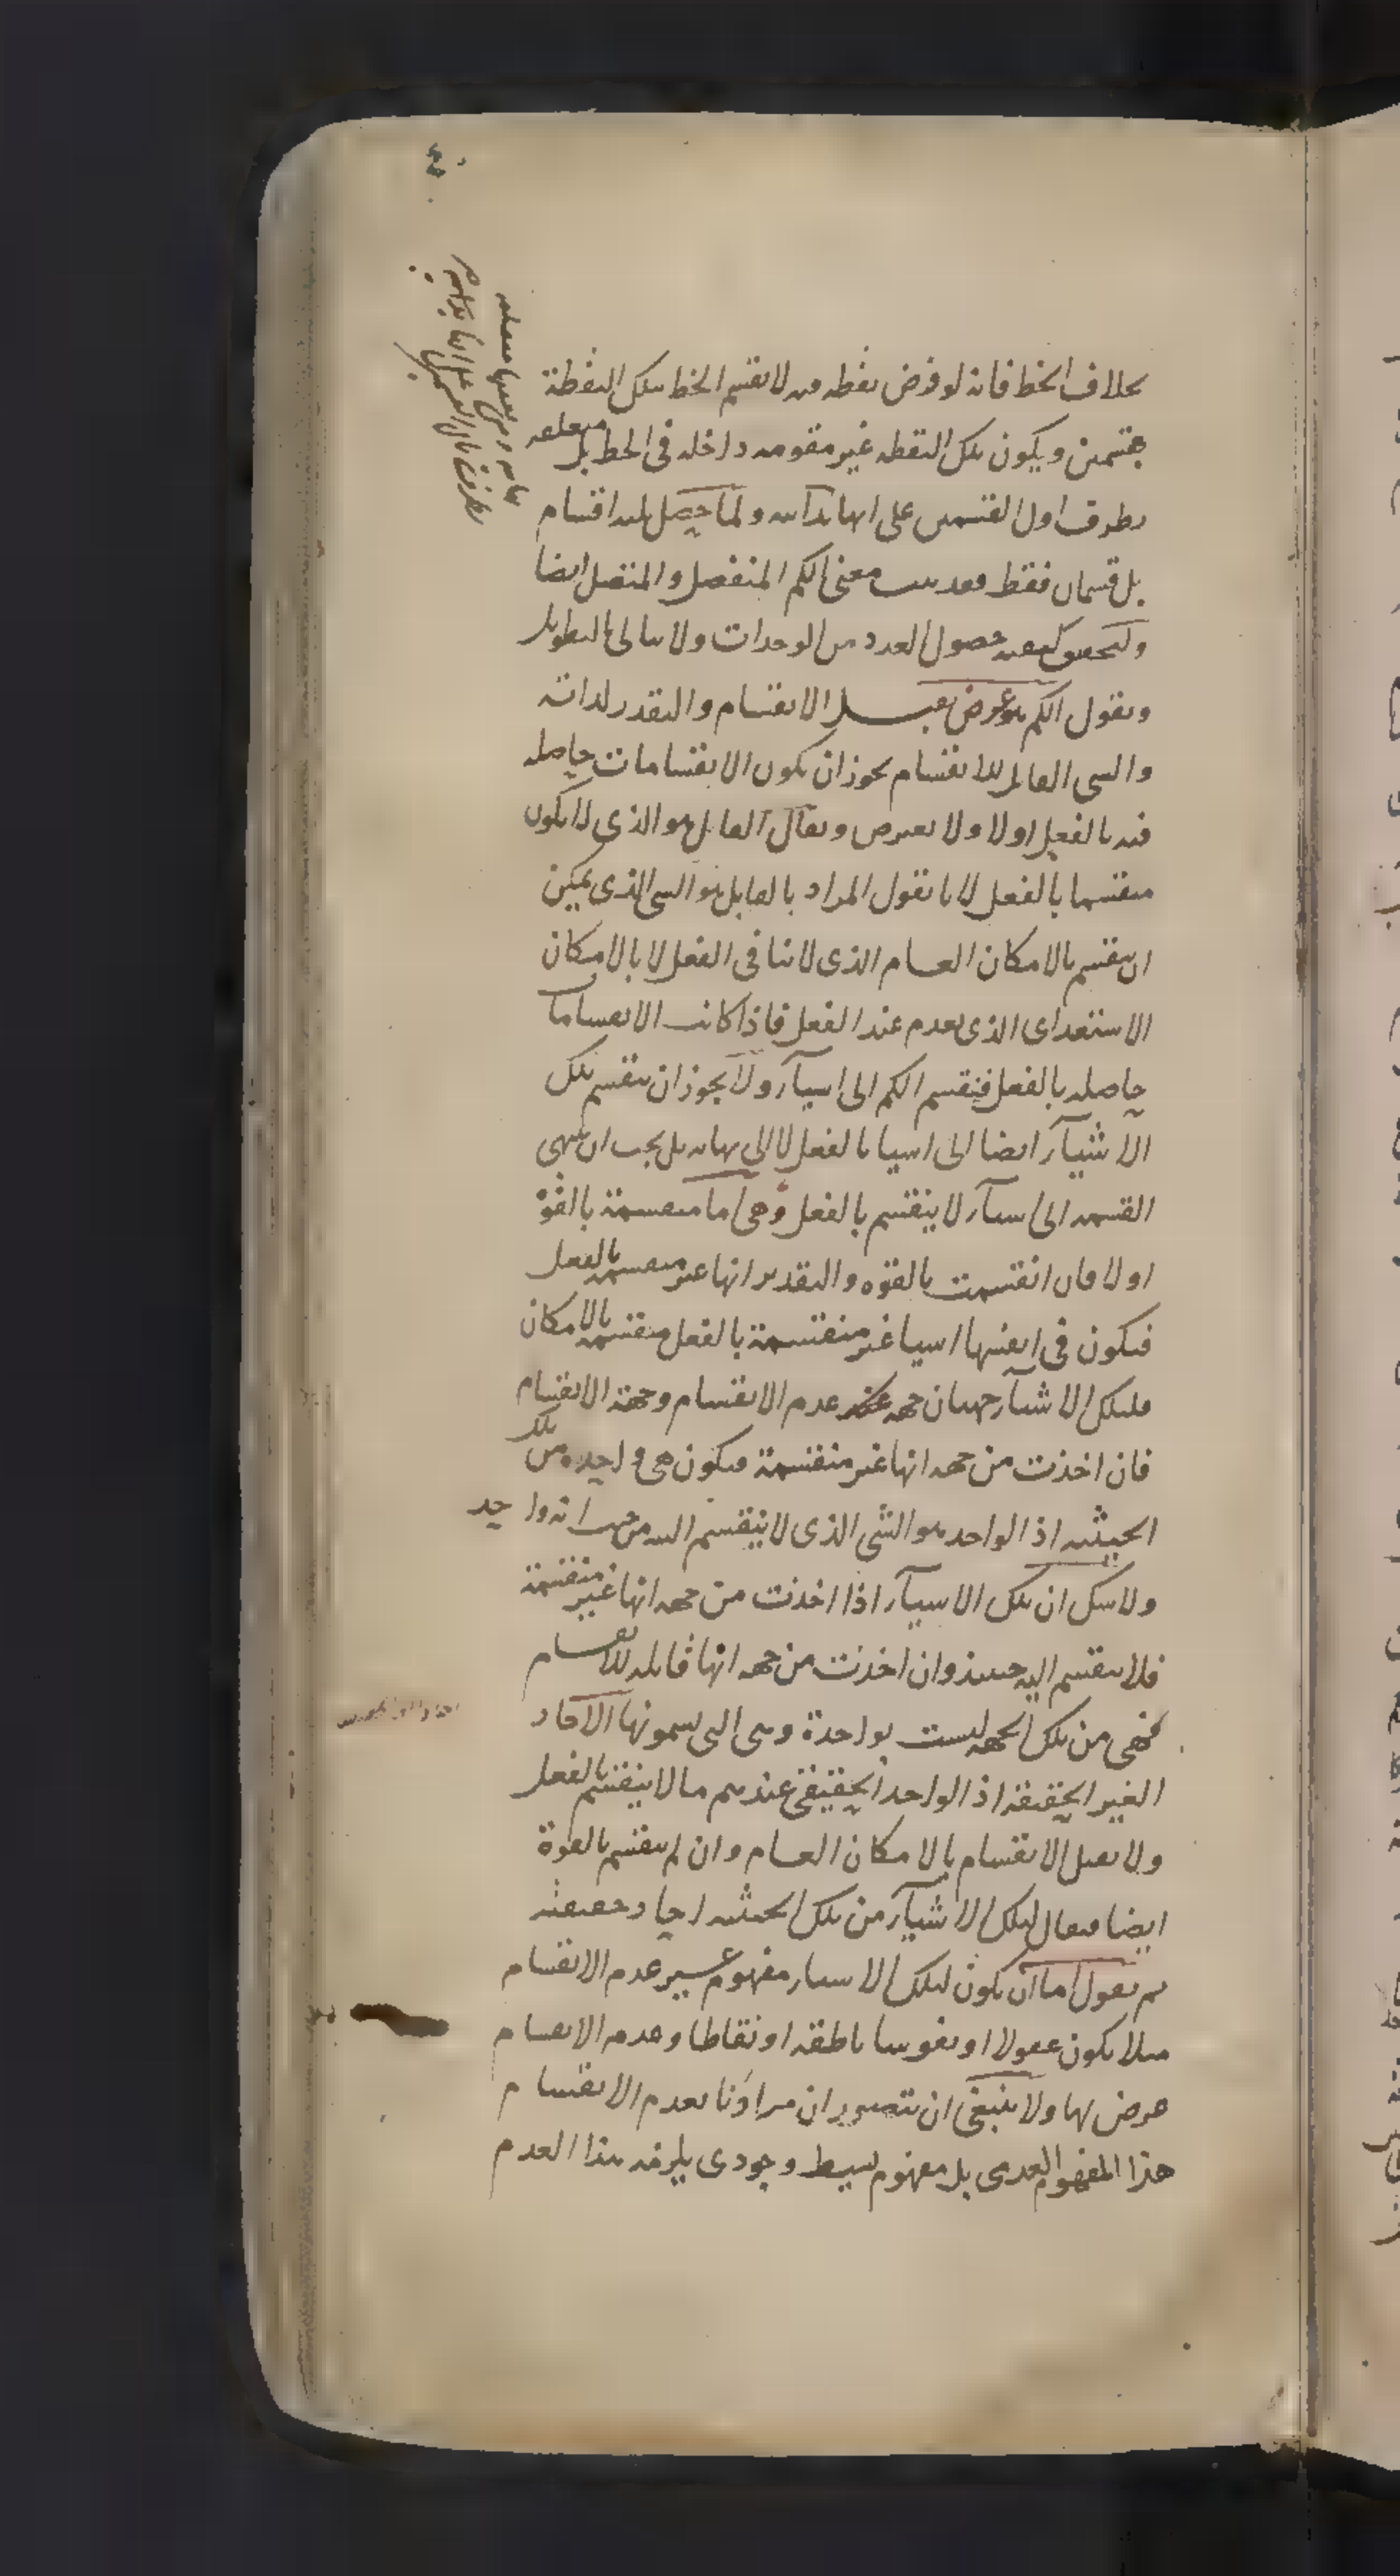 ٤٠
بخلاف الخط فانه لو فرض نقطه فيه لا نقسم الخط بتلك النقطة
بقسمين ويكون تلك النقطه غير مقومه داخله فى الخط بل متعلقه
بطرف اول القسمين على انها بداية ولما حصل اقسام
بل قسمان فقط فقد معنى الكم المنفصل والمتصل ايضا
ولتحقق كيفيه حصول العدد من الوحدات ولا نبالى بالتطويل
ونقول الكم هو عرض يقبل الانقسام والتقدر لذاته
والشى القابل للانقسام يجوز ان يكون الانقسامات حاصله
فيه بالفعل اولا ولا يعترض ويقال القابل هو الذى لا يكون
منقسما بالفعل لانا نقول المراد بالقابل هو الشى الذى يمكن
ان ينقسم بالامكان العام الذى لا ينافى الفعل لا بالامكان
الاستعدادى الذى يعدم عند الفعل فاذا كانت الانقساما
حاصله بالفعل فينقسم الكم الى اشياء ولا يجوز ان ينقسم تلك
الاشياء ايضا الى اشيا بالفعل لا الى نهايه بل يجب ان ينتهى
القسمه الى اشياء لا ينقسم بالفعل وهى اما منقسمة بالقوة
اولا فان انقسمت بالقوه والتقدير انها غير منقسمه بالفعل
فيكون فى انفسها اشيا غير منقسمة بالفعل منقسمه بالامكان
فلتلك الاشياء جهتان جهه عدم الانقسام وجهة الانقسام
فان اخذت من جهه انها غير منقسمة فيكون هى واحده من تلك
الحيثيه اذ الواحد هو الشى الذى لا ينقسم البته من جهه انه واحد
ولا شك ان تلك الاشياء اذا اخذت من جهه انها غير منقسمة
فلا ينقسم اليه حينئذ وان اخذت من جهه انها قابله للانقسام
فهى من تلك الجهه ليست بواحدة وهى التى يسمونها الآحاد
الغير الحقيقيه اذ الواحد الحقيقى عندهم ما لا ينقسم بالفعل
ولا يقبل الانقسام بالامكان العام وان لم ينقسم بالقوة
ايضا فيقال لتلك الاشياء من تلك الحيثيه احاد حقيقيه
ثم نقول اما ان يكون لتلك الاشياء مفهوم غير عدم الانقسام
مثلا يكون عقولا او نفوسا ناطقه او نقاطا وعدم الانقسام
عرض لها ولا ينبغى ان تتصور ان مرادنا بعدم الانقسام
هذا المفهوم العدمى بل مفهوم بسيط وجودى يلزمه هذا العدم